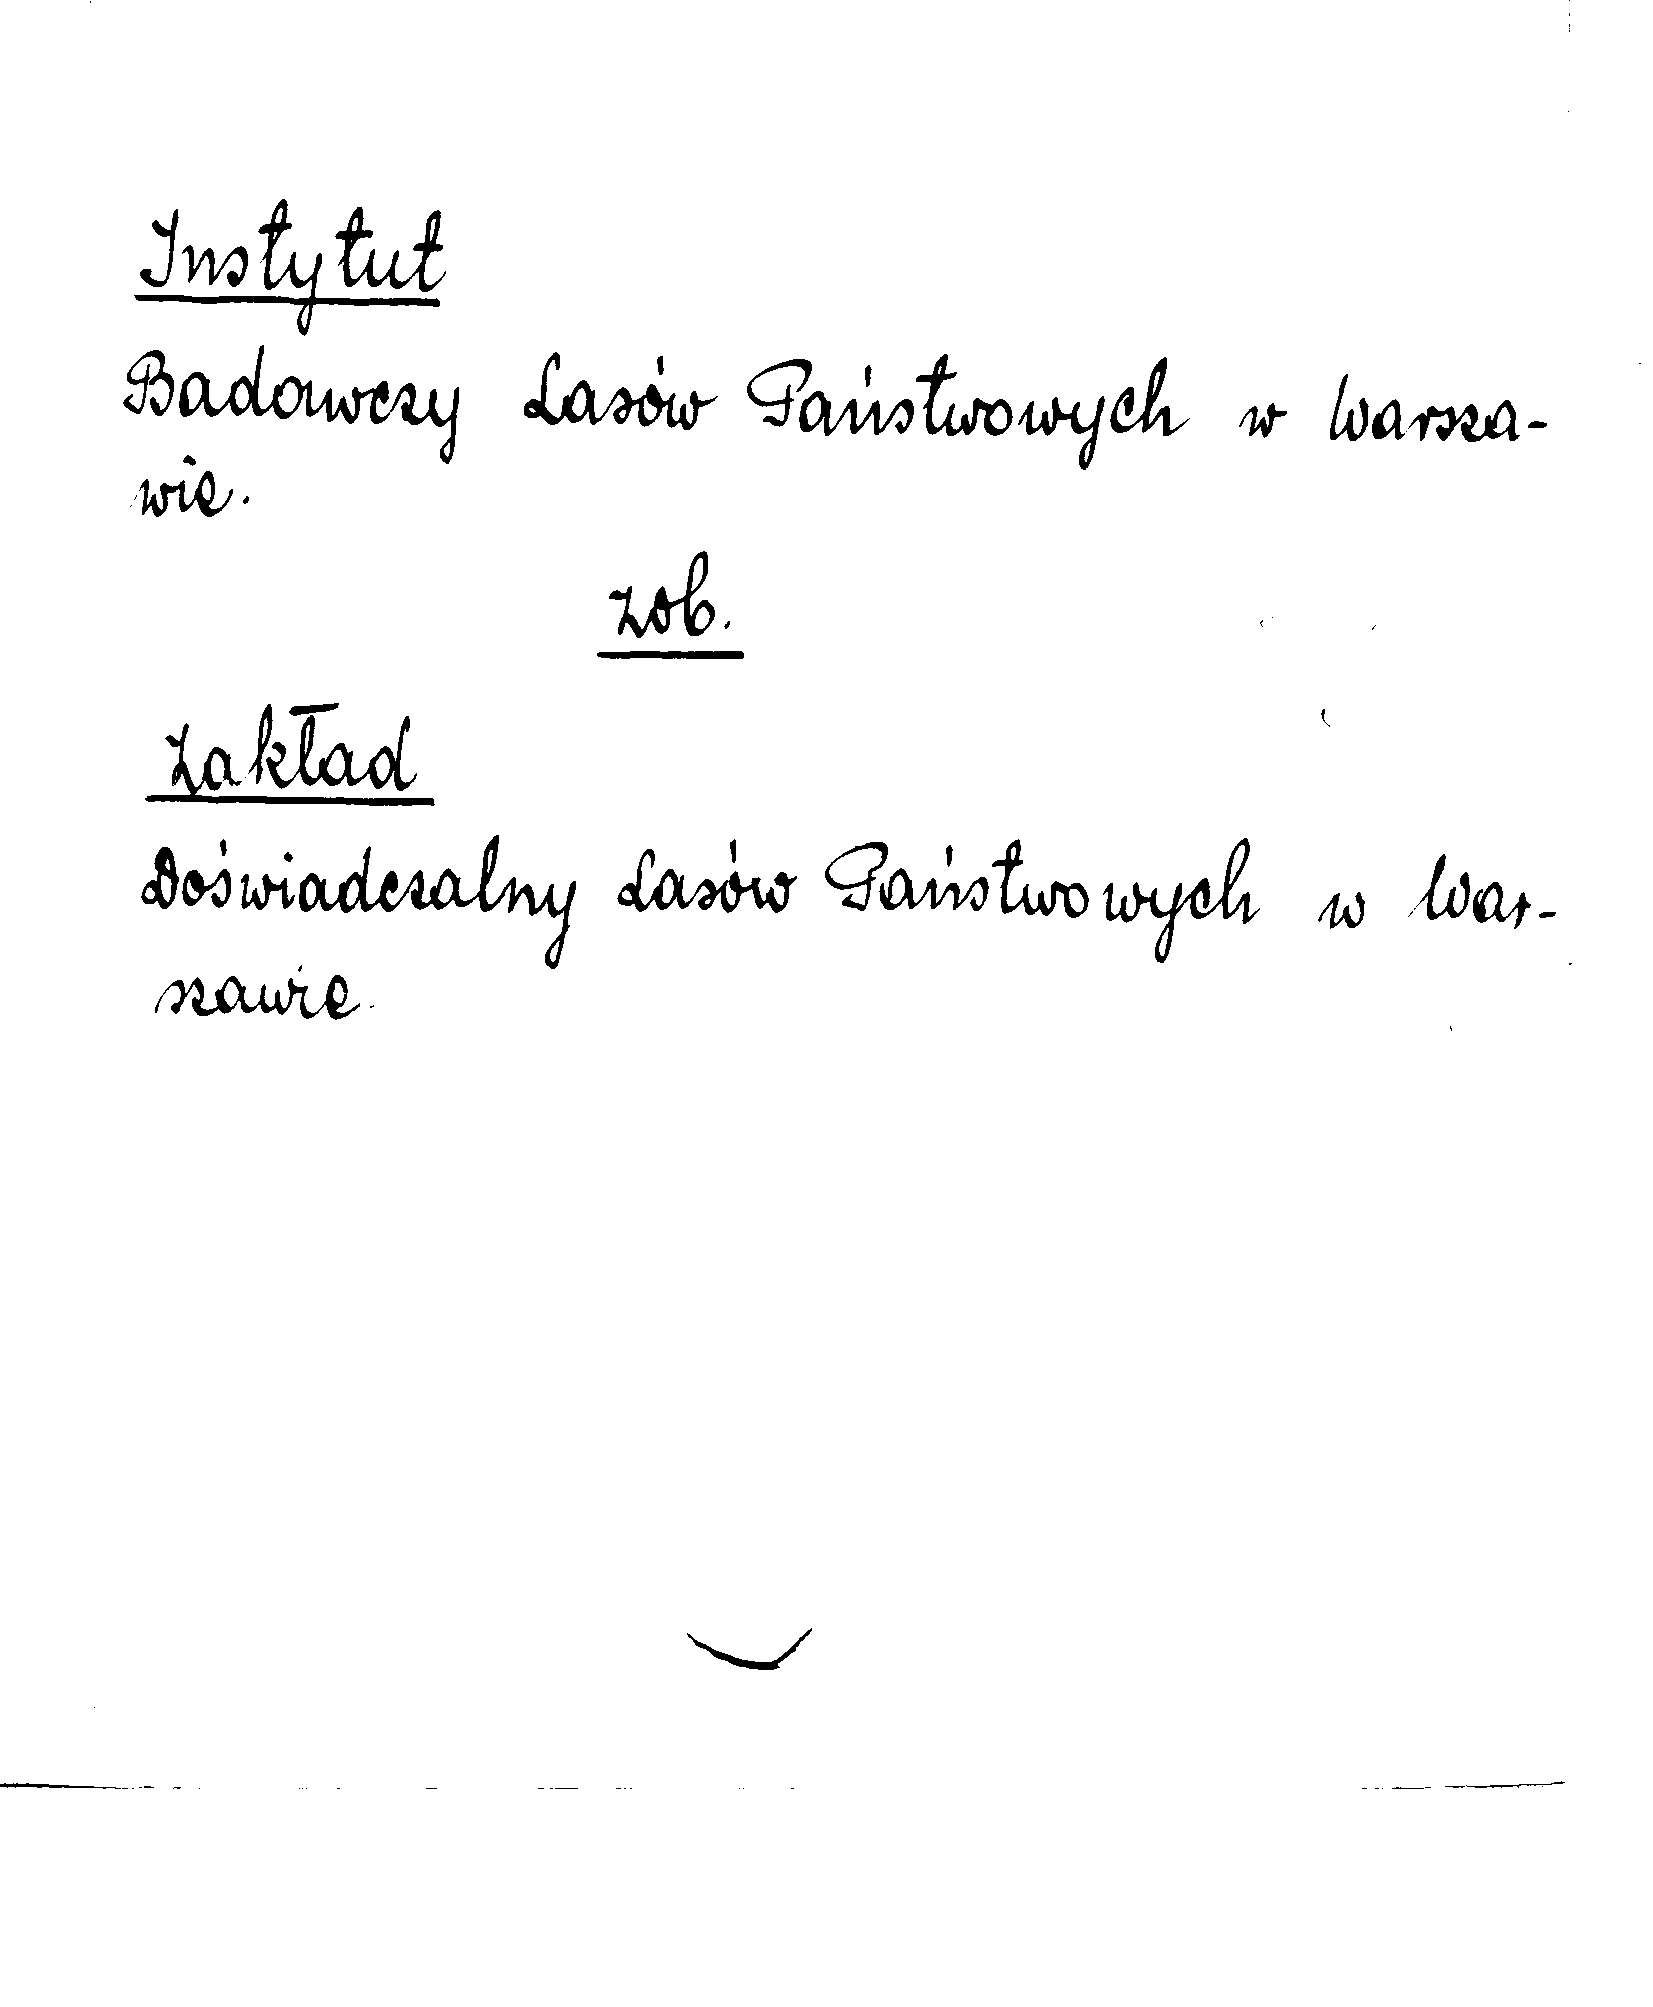 Instytut
Badawczy Lasów Państwowych w Warsza-
wie.
zob.
Zakład
Doświadczalny Lasów Państwowych w War-
szawie.